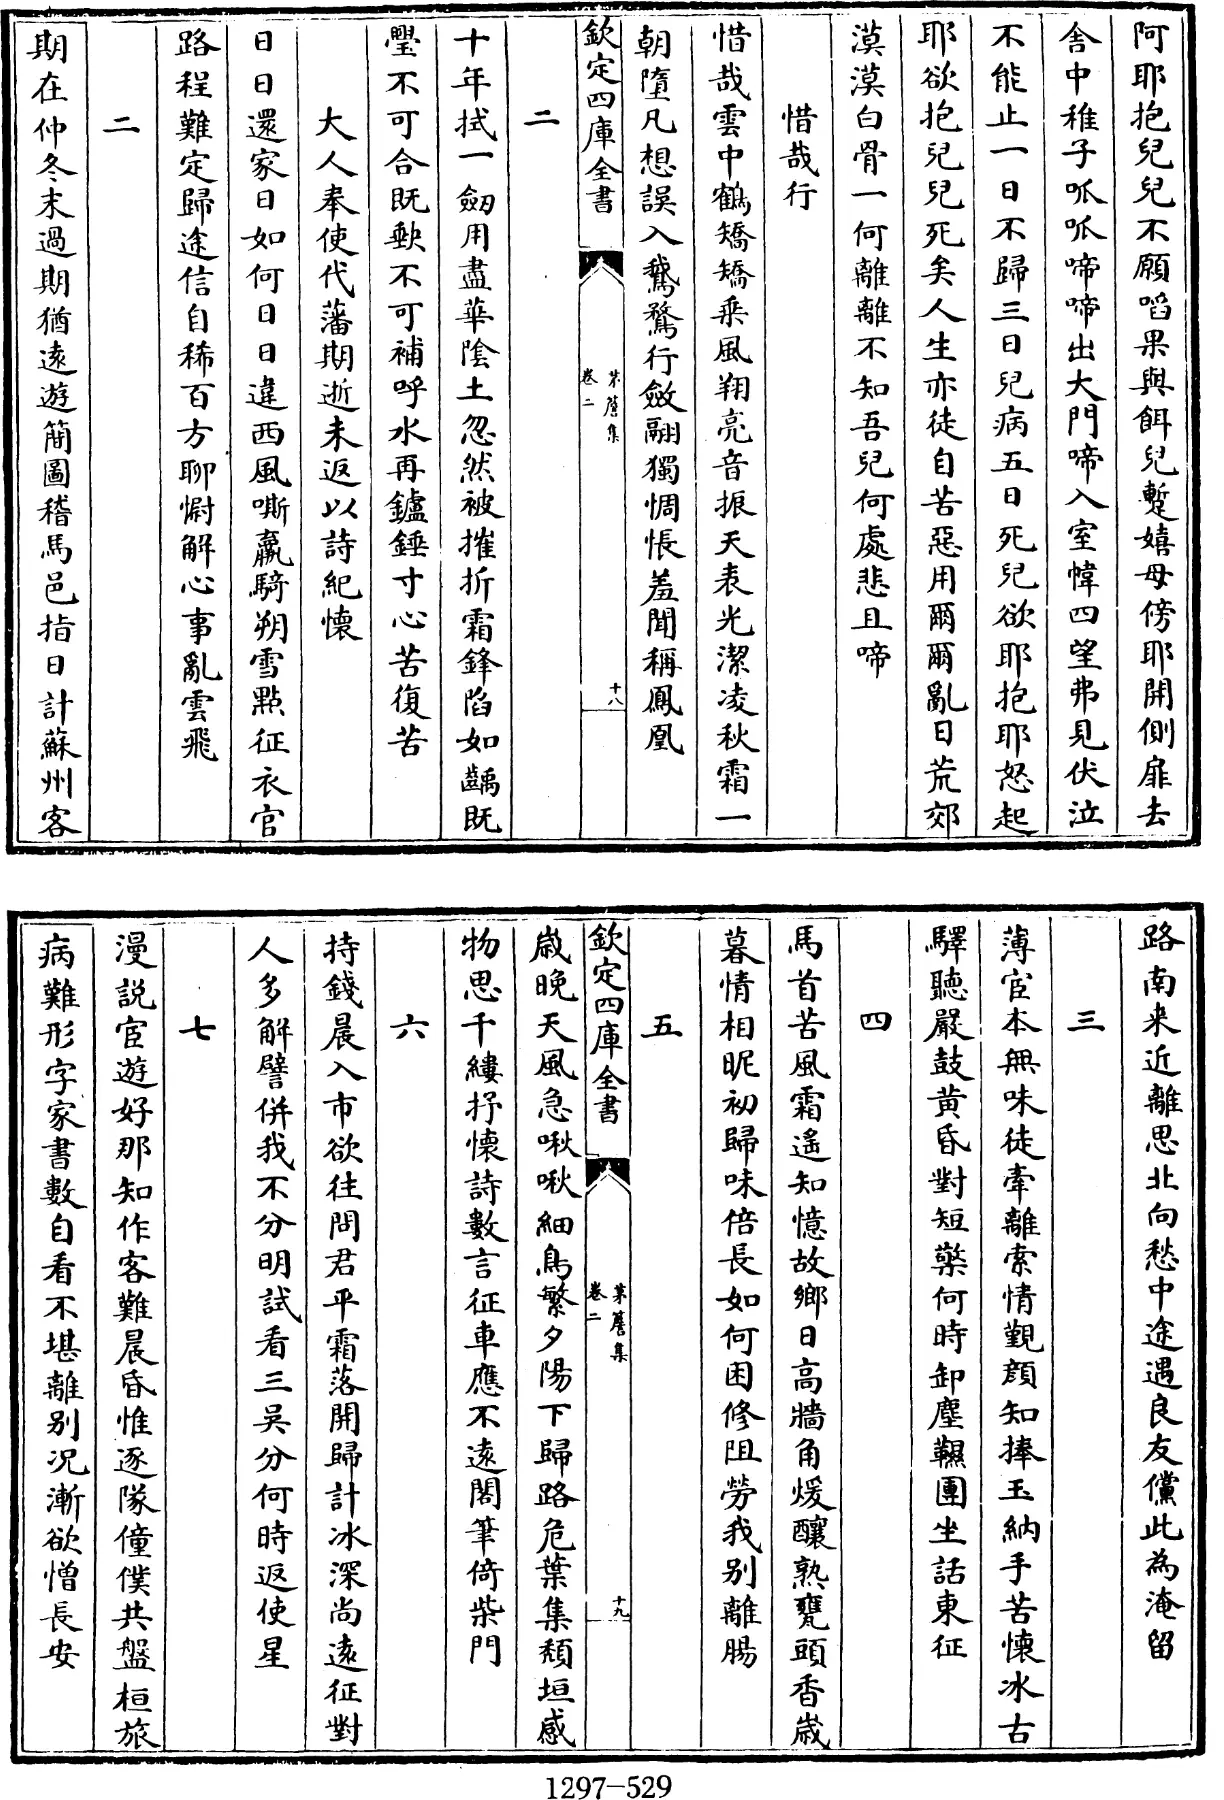 阿耶抱兒兒不願啗果與餌兒蹔嬉母傍耶開側扉去
舍中稚子呱呱啼啼出大門啼入室幃四望弗見伏泣
不能止一日不歸三日兒病五日死兒欲耶抱耶怒起
耶欲抱兒兒死矣人生亦徒自苦惡用爾爾亂日荒郊
漠漠白骨一何離離不知吾兒何處悲且啼
惜哉行
惜哉雲中鶴矯矯乘風翔亮音振天表光潔凌秋霜一
朝墮凡想誤入鵞鶩行斂翮獨惆悵羞聞稱鳳凰
欽定四庫全書
茅簷集
卷二
十八
二
十年拭一劒用盡華陰土忽然被摧折霜鋒陷如齲既
璺不可合既㱃不可補呼水再鑪錘寸心苦復苦
大人奉使代藩期逝未返以詩紀懷
日日還家日如何日日違西風嘶羸騎朔雪點征衣官
路程難定歸途信自稀百方聊慰解心事亂雲飛
二
期在仲冬末過期猶遠遊簡圖稽馬邑指日計蘇州客
路南来近離思北向愁中途遇良友儻此為淹留
三
薄宦本無味徒牽離索情覲顔知捧玉納手苦懷冰古
驛聽嚴鼓黄昏對短檠何時卸塵鞿團坐話東征
四
馬首苦風霜遙知憶故鄉日高牆角煖釀熟甕頭香歲
暮情相昵初歸味倍長如何困修阻勞我别離腸
五
欽定四庫全書
茅簷集
卷二
十九
歲晚天風急啾啾細鳥繁夕陽下歸路危葉集頽垣感
物思千縷抒懷詩數言征車應不遠閣筆倚柴門
六
持錢晨入市欲往問君平霜落開歸計冰深尚遠征對
人多解譬併我不分明試看三吳分何時返使星
七
漫說宦遊好那知作客難晨昏惟逐隊僮僕共盤桓旅
病難形字家書數自看不堪離别况漸欲憎長安
1297-529